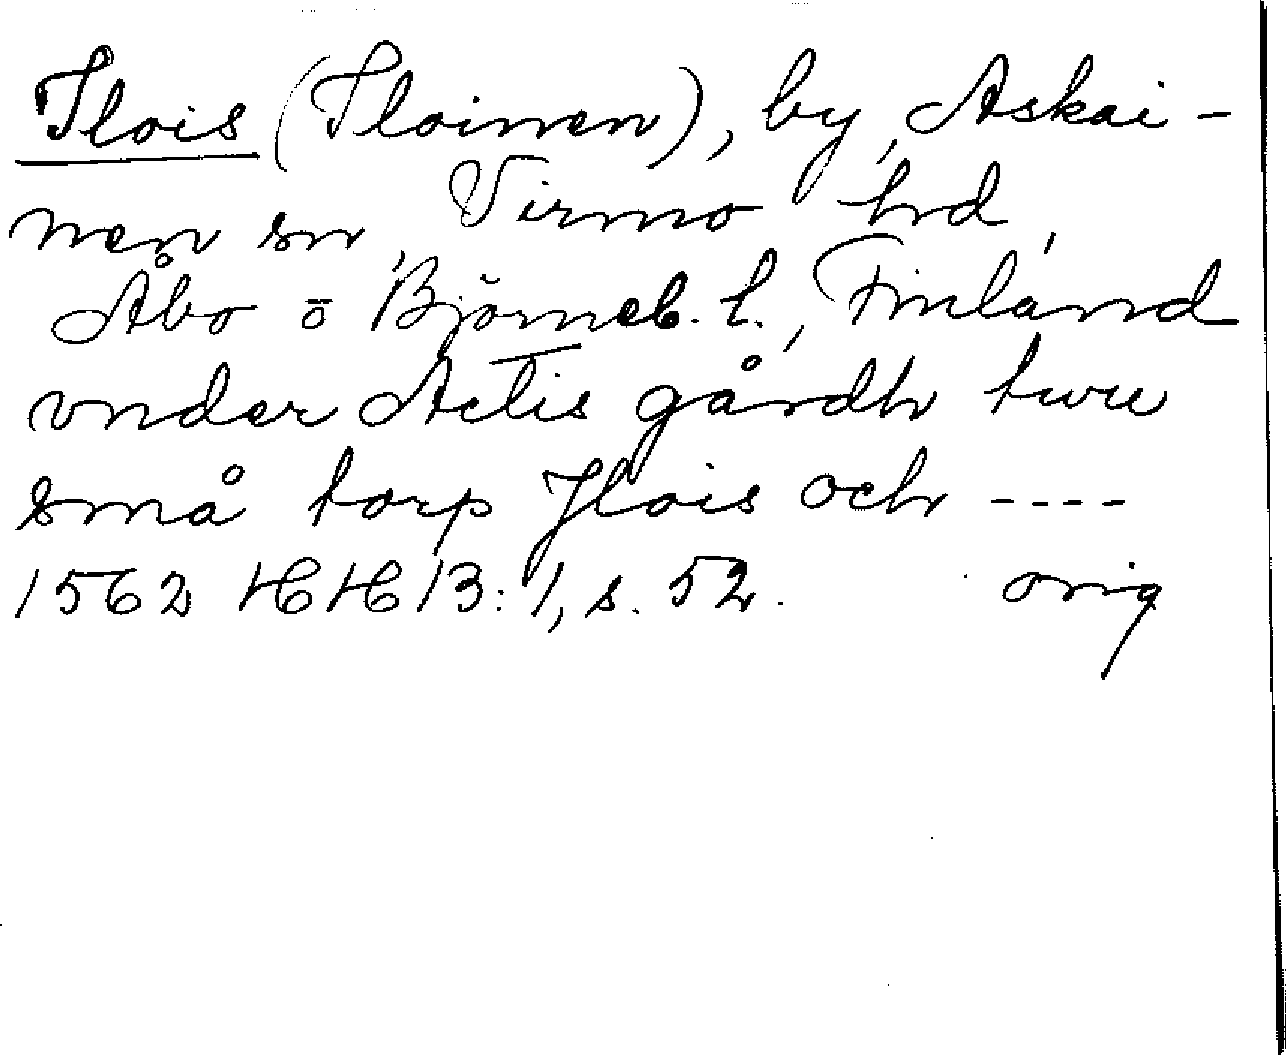 Ilois (Iloinen), by, Askai-
nen sn, Virmo hd,
Åbo o Björneb. l., Finland
vnder Aetis gårdh twu
små torp Jlois och ----
1562 HH 13:1, s. 52. orig